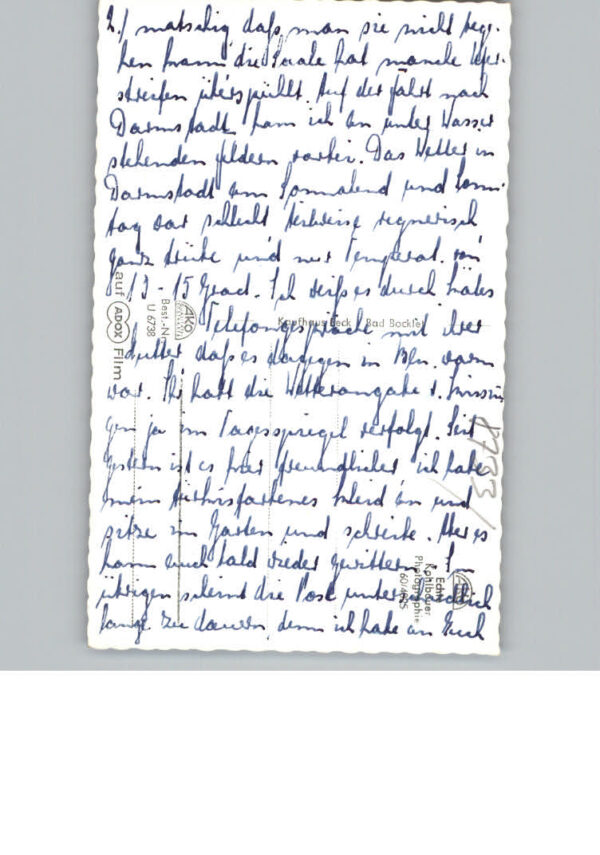 2./ matschig daß man sie nicht bege-
hen kann die Saale hat manche Ufer-
streifen überspühlt. Auf der Fahrt nach
Darmstadt kam ich an unter Wasser
stehenden Feldern vorbei. Das Wetter in
Darmstadt am Sonnabend und Sonn-
tag war schlecht teilweise regnerisch
ganz trübe und nur Temperat. von
13 - 15 Grad. Ich weiß es durch
Telefongespräche mit der
Mutter daß es dagegen in Bln. warm
war. Ihr habt die Wetterangabe v. Kissin
gen ja im Tagesspiegel verfolgt. Seit
gestern ist es hier freundlicher ich habe
mein türkisfarbenes Kleid an und
sitze im Garten und schreibe. Aber es
kann auch bald wieder gewittern. Im
übrigen scheint die Post unterschiedlich
lange zu dauern, denn ich habe an Euch
auf ADOX Film
Best.-Nr.
U 6738
AKO
Kaufhaus Beck Bad Bocklet
8733/
Echte
Kohlbauer
Photographie